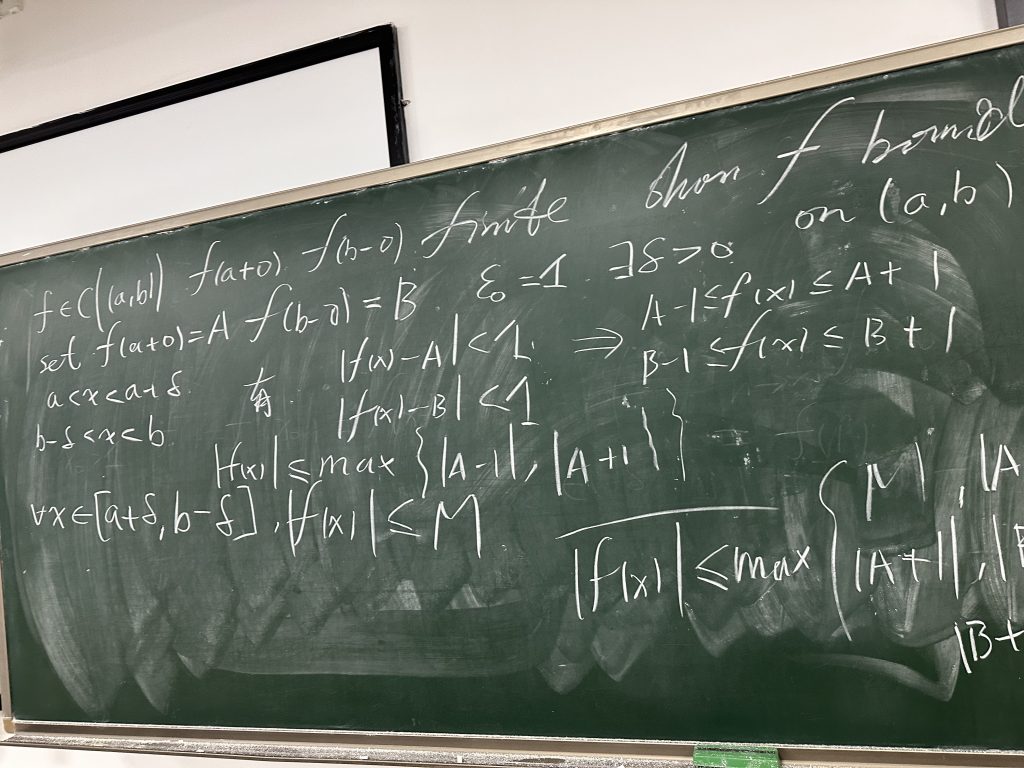 f∈C((a,b)) f(a+0) f(b-0) finite show f bounded on (a,b)
set f(a+0)=A f(b-0)=B ε₀=1 ∃δ>0
a<x<a+δ 有 |f(x)-A|<1 ⇒ A-1≤f(x)≤A+1
b-δ<x<b |f(x)-B|<1 B-1≤f(x)≤B+1
|f(x)|≤max{|A-1|,|A+1|}
∀x∈[a+δ,b-δ],|f(x)|≤M
|f(x)|≤max{M,|A
|A+1|,|B
|B+